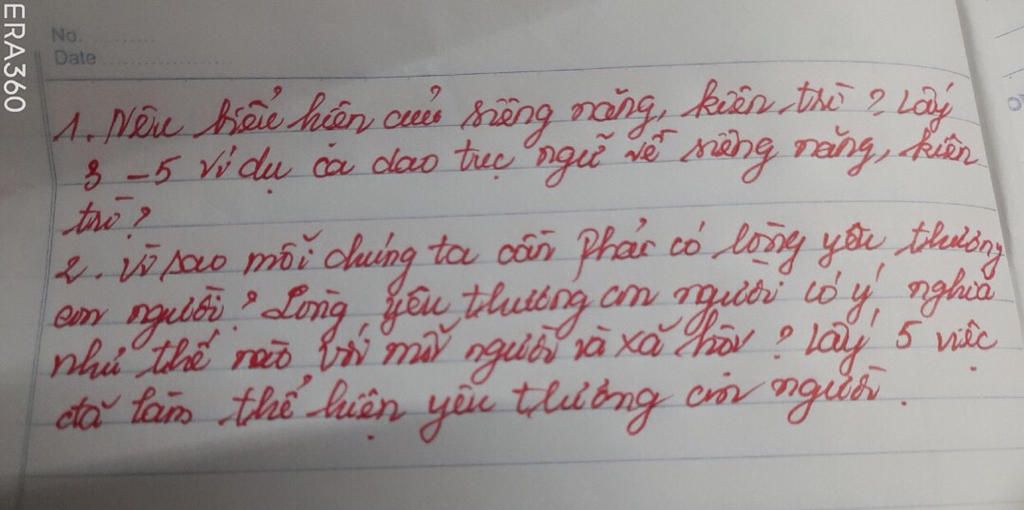 ERA360
No.
Date
1. Nêu biểu hiện của siêng năng, kiên trì? Lấy
3 - 5 ví dụ ca dao tục ngữ về siêng năng, kiên
trì?
2. Vì sao mỗi chúng ta cần phải có lòng yêu thương
con người? Lòng yêu thương con người có ý nghĩa
như thế nào với mỗi người và xã hội? Lấy 5 việc
đã làm thể hiện yêu thương con người.